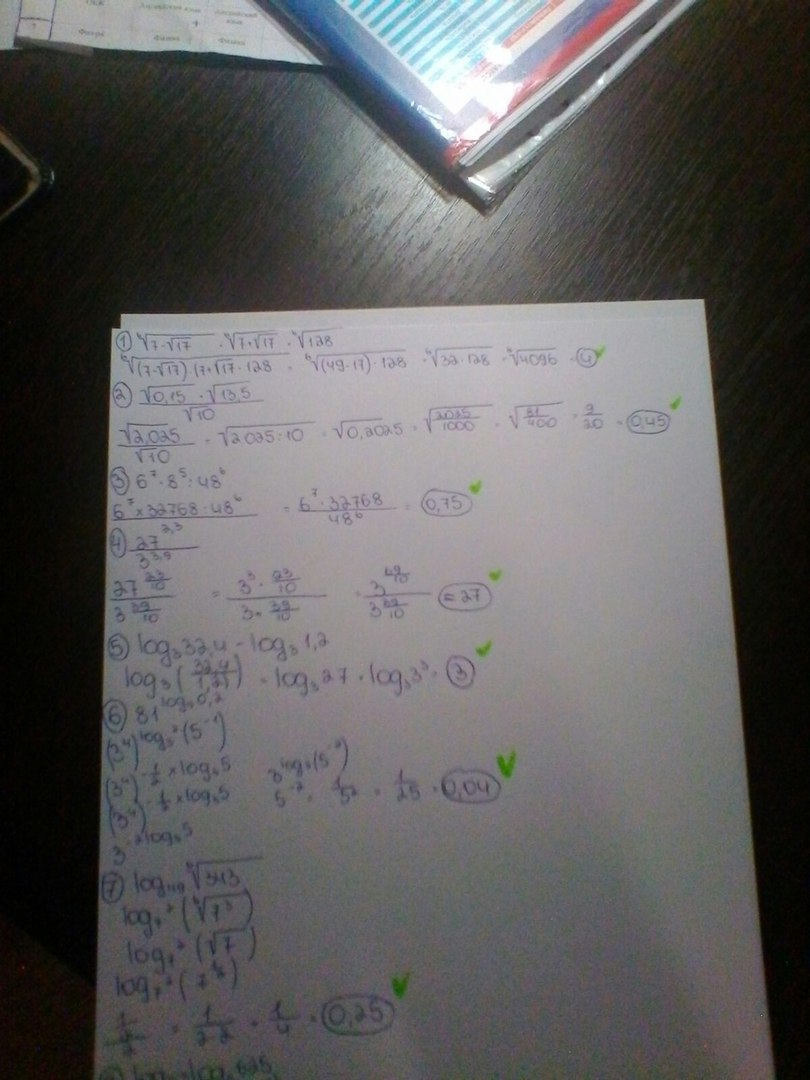 Физика Физика
① ⁶√7-√17 · ⁶√7+√17 · ⁶√128
⁶√(7-√17)(7+√17)·128 = ⁶√(49-17)·128 = ⁶√32·128 = ⁶√4096 = 4
② √0,15 · √13,5 / √10
√2,025 / √10 = √2.025:10 = √0,2025 = √2025/1000 = √81/400 = 9/20 = 0,45
③ 6⁷·8⁵:48⁶
6⁷×32768:48⁶ = 6⁷·32768 / 48⁶ = 0,75
④ 27^2,3 / 3^3,9
27^23/10 / 3^39/10 = 3³·23/10 / 3·39/10 = 3^69/10 / 3^39/10 = 27
⑤ log₃32,4 - log₃1,2
log₃(32,4/1,2) = log₃27 = log₃3³ = 3
⑥ 81^log₉0,2
(3⁴)^log₃²(5⁻¹)
(3⁴)^-½×log₃5 3^log₃(5⁻²)
(3⁴)^-½×log₃5 5⁻² = 1/5² = 1/25 = 0,04
3^-2×log₃5
⑦ log₄₉ ⁶√343
log₇²(⁶√7³)
log₇²(√7)
log₇²(7^½)
½/2 = 1/2·2 = 1/4 = 0,25